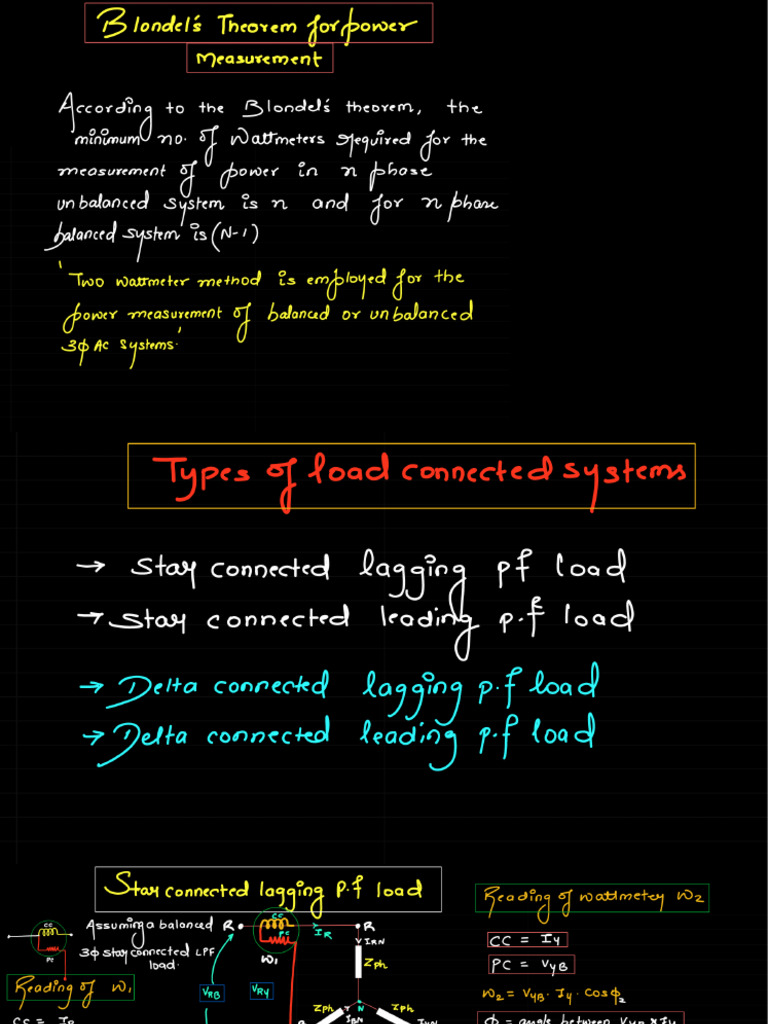 Blondel's Theorem for power
Measurement
According to the Blondel's theorem, the
minimum no. of Wattmeters required for the
measurement of power in n phase
unbalanced system is n and for n phase
balanced system is (N-1)
'Two wattmeter method is employed for the
power measurement of balanced or unbalanced
3ϕ AC systems.'
Types of load connected systems
→ Star connected lagging pf load
→ Star connected leading p.f load
→ Delta connected lagging p.f load
→ Delta connected leading p.f load
Star connected lagging p.f load
CC
PC
Assuming a balanced
3ϕ star connected LPF
load.
Reading of W1
CC = IR
R
CC
PC
W1
IR
R
IRN
Zph
VRB
VRY
Zph
N
Zph
IBN
IYN
B
Reading of wattmeter W2
CC = IY
PC = VYB
W2 = VYB · IY · cosϕ2
ϕ = angle between VYB & IY